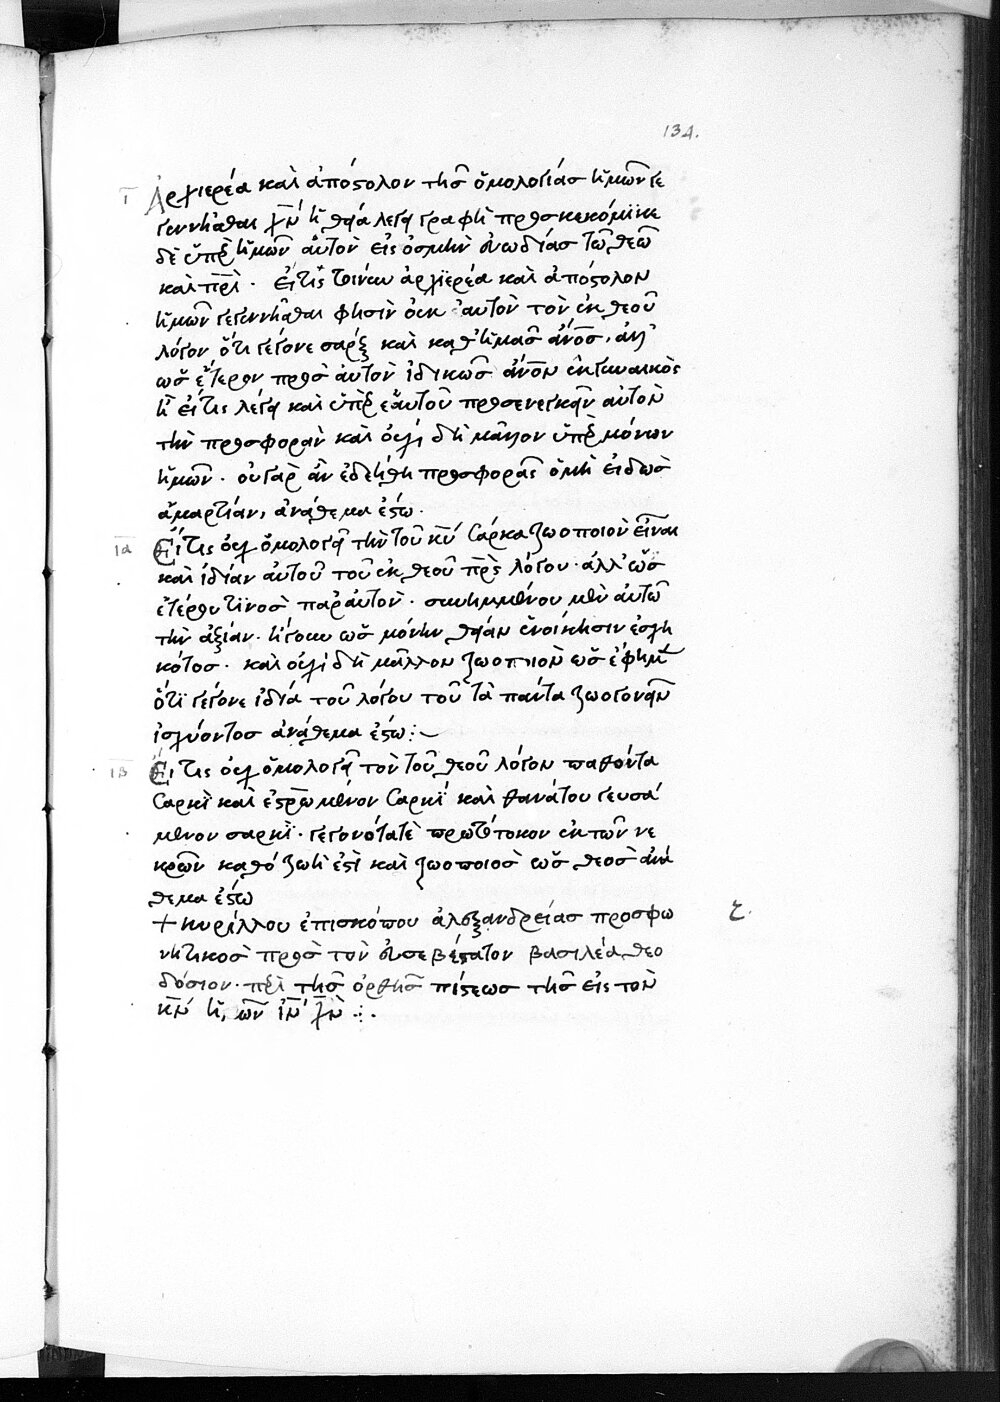 134.
ι Ἀρχιερέα καὶ ἀπόστολον τῆς ὁμολογίας ἡμῶν γε
γεννῆσθαι χν̅ ἡ θεία λέγει γραφὴ προσκεκόμικε
δὲ ὑπὲρ ἡμῶν αὑτὸν εἰς ὀσμὴν εὐωδίας τῶ θεῶ
καὶ πρ̅ι · εἴ τις τοίνυν ἀρχιερέα καὶ ἀπόστολον
ἡμῶν γεγεννῆσθαι φησὶν οὐκ αὐτὸν τὸν ἐκ θεοῦ
λόγον ὅτι γέγονε σαρξ καὶ καθ' ἡμᾶς ἄνο̅ς · ἀλλ'
ὡς ἕτερον πρὸς ἀυτὸν ἰδικῶς ἄνο̅ν ἐκ γυναικὸς
ἢ εἴ τις λέγει καὶ ὑπὲρ ἑαυτοῦ προσενεγκεῖν αὐτὸν
τὴν προσφορὰν καὶ οὐχὶ δὴ μᾶλλον ὑπὲρ μόνων
ἡμῶν · οὐ γὰρ ἂν ἐδεήθη προσφορᾶς ὁ μὴ εἰδὼς
ἁμαρτίαν, ἀνάθεμα ἔστω ·
ια Εἴ τις οὐχ ὁμολογεῖ τὴν τοῦ κυ̅ σάρκα ζωοποιὸν εἶναι
καὶ ἰδίαν αὐτοῦ τοῦ ἐκ θεοῦ πρ̅ς λόγου · ἀλλ' ὡς
ἑτέρου τινὸς παρ' αὐτὸν · συνημμένου μὲν αὐτῶ
τὴν ἀξίαν · ἤγουν ὡς μόνην θείαν ἐνοίκησιν ἐσχη
κότος · καὶ οὐχὶ δὴ μᾶλλον ζωοποιὸν ὡς ἔφημεν
ὅτι γέγονε ἰδία τοῦ λόγου τοῦ τὰ πάντα ζωογονεῖν
ἰσχύοντος ἀνάθεμα ἔστω :~
ιβ Εἴ τις οὐχ ὁμολογεῖ τὸν τοῦ θεοῦ λόγον παθόντα
σαρκὶ καὶ ἐσταυρωμένον σαρκὶ καὶ θανάτου γευσά
μενον σαρκὶ · γεγονότα τὲ πρωτότοκον ἐκ τῶν νε
κρῶν καθὸ ζωή ἐστὶ καὶ ζωοποιὸς ὡς θεὸς ἀνά
θεμα ἔστω
+ κυρίλλου ἐπισκόπου ἀλεξανδρείας προσφω
νητικὸς πρὸς τὸν εὐσεβέστατον βασιλέα θεο
δόσιον · περὶ τῆς ὀρθῆς πίστεως τῆς εἰς τὸν
κν̅ ἡμῶν ιν̅ χν̅ :·